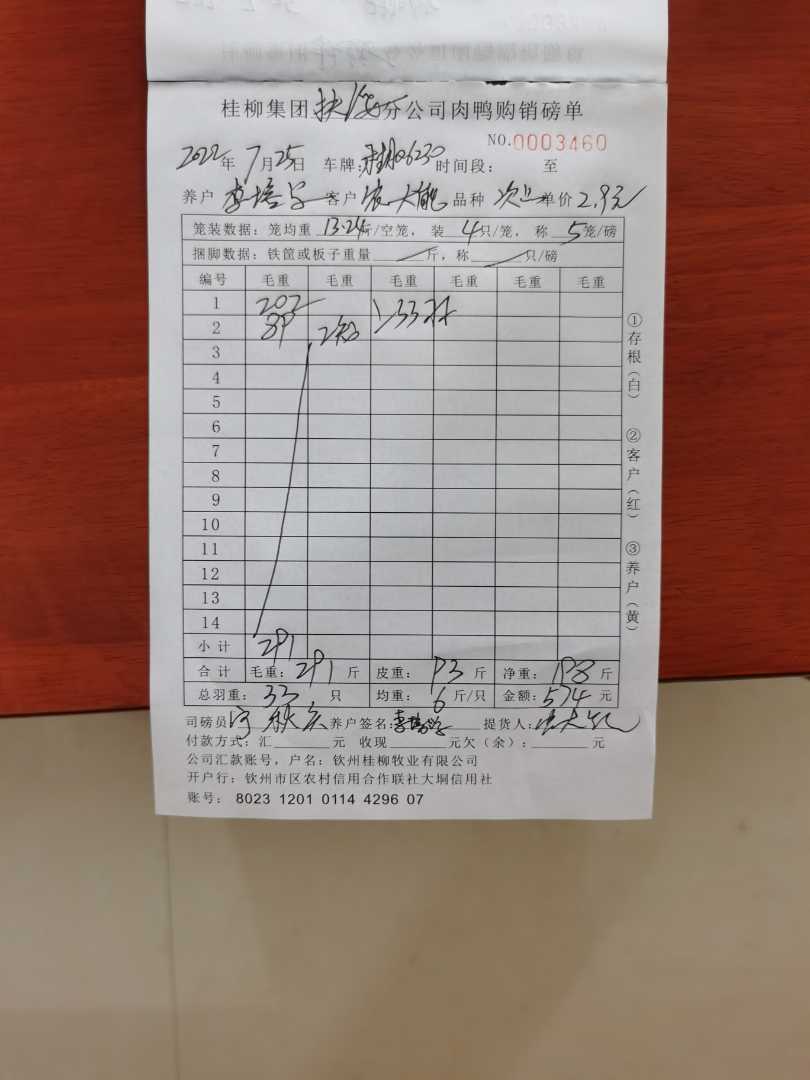 桂柳集团 分公司肉鸭购销磅单
NO.0003460
2022年 7月25日 车牌: 06230 时间段: 至
养户 李培 客户 农大 品种 次 单价 2.9元
笼装数据:笼均重 13.24斤/空笼, 装 4只/笼, 称 5笼/磅
捆脚数据:铁筐或板子重量 斤,称 只/磅
编号 毛重 毛重 毛重 毛重 毛重 毛重
1 202
2 89 2 33
3
4
5
6
7
8
9
10
11
12
13
14
小计 291
合计 毛重: 291 斤 皮重: 93 斤 净重: 198 斤
总羽重: 33 只 均重: 6 斤/只 金额: 574 元
司磅员 养户签名: 李培 提货人: 农大
付款方式:汇 元 收现 元欠(余): 元
公司汇款账号,户名:钦州桂柳牧业有限公司
开户行:钦州市区农村信用合作联社大垌信用社
账号: 8023 1201 0114 4296 07
①存根(白)
②客户(红)
③养户(黄)